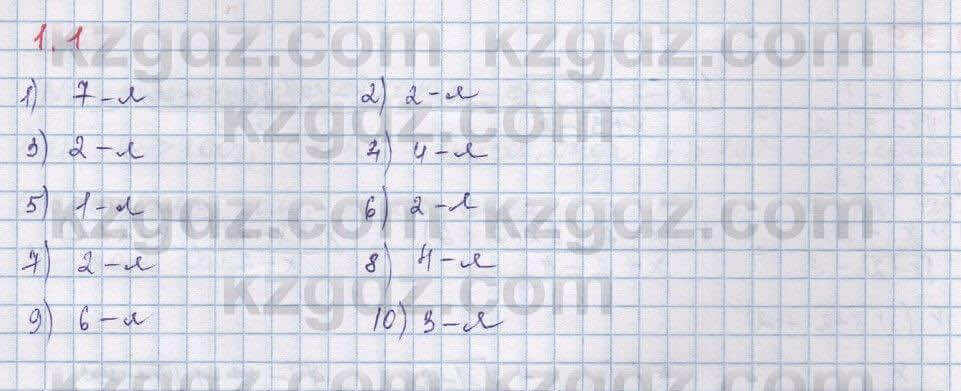 1.1
kzgdz.com kzgdz.com
1) 7-я 2) 2-я
kzgdz.com
3) 2-я 4) 4-я
5) 1-я 6) 2-я
kzgdz.com kzgdz.com
7) 2-я 8) 4-я
kzgdz.com
9) 6-я 10) 3-я